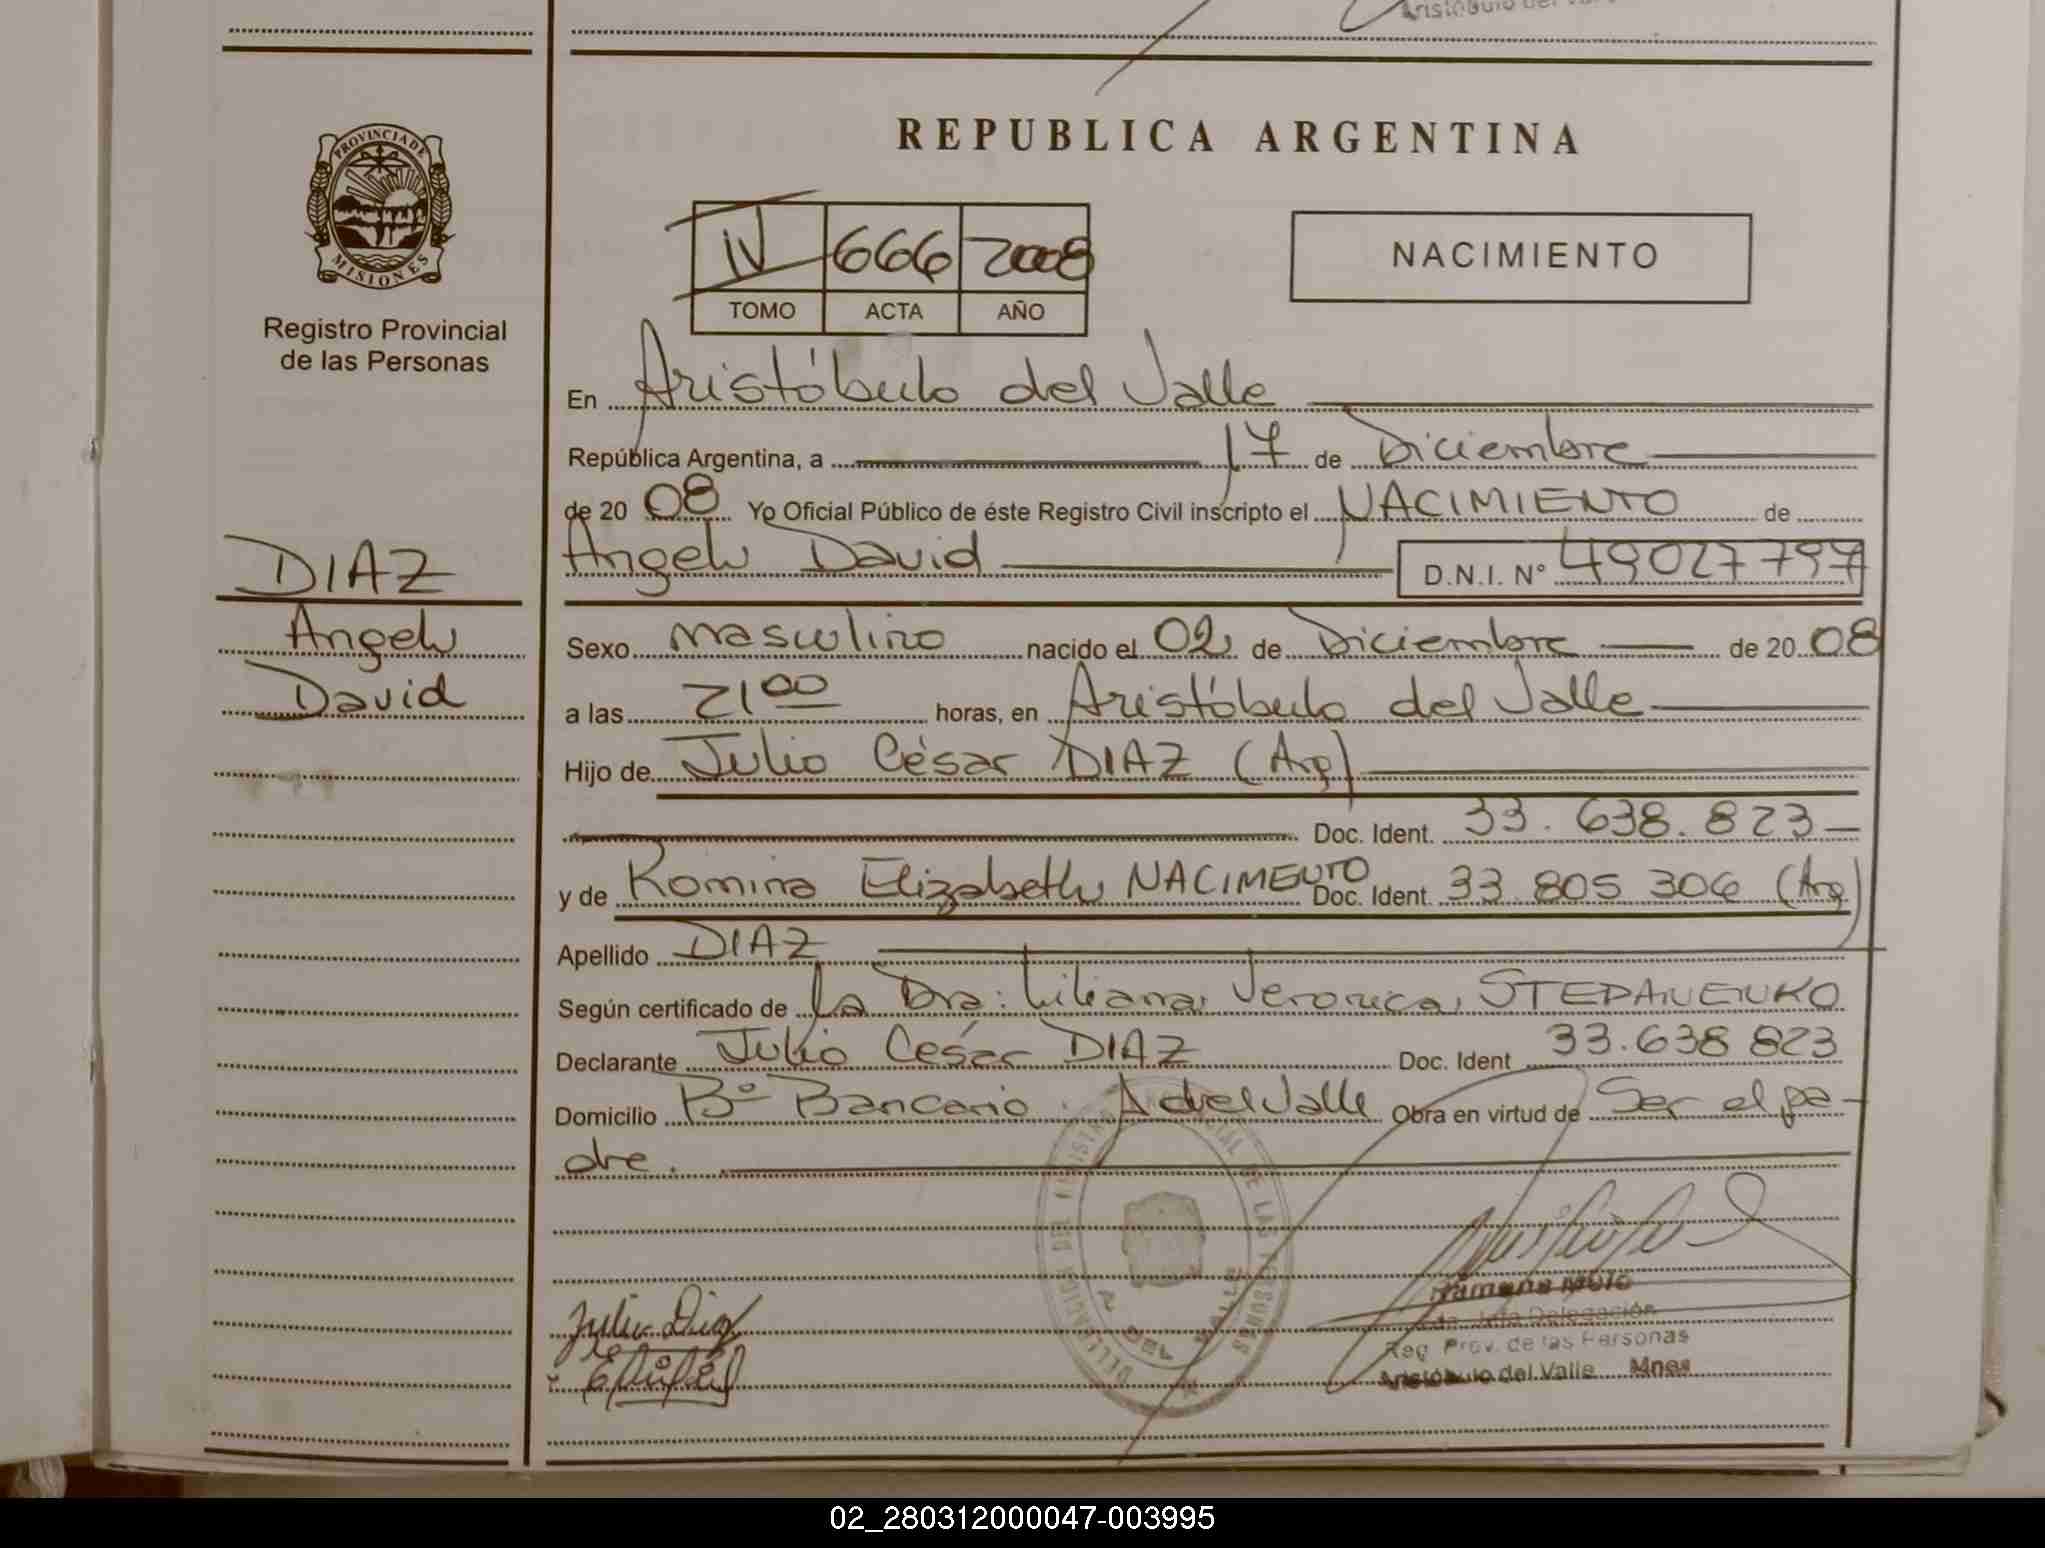 REPUBLICA ARGENTINA
PROVINCIA DE
MISIONES
Registro Provincial
de las Personas
IV 666 2008
TOMO ACTA AÑO
NACIMIENTO
En Aristóbulo del Valle
República Argentina, a 17 de Diciembre
de 20 08 Yo Oficial Público de éste Registro Civil inscripto el NACIMIENTO de
DIAZ
Angel David
D.N.I. N° 49027797
Angel
David
Sexo masculino nacido el 02 de Diciembre de 20 08
a las 21 00 horas, en Aristóbulo del Valle
Hijo de Julio César DIAZ (Arg)
Doc. Ident. 33.638.823
y de Romina Elizabeth NACIMENTO Doc. Ident. 33.805 306 (Arg)
Apellido DIAZ
Según certificado de La Dra: Liliana Veronica STEPANENKO
Declarante Julio César DIAZ Doc. Ident 33.638 823
Domicilio Bº Bancario. A del Valle Obra en virtud de Ser el pa-
dre.
DEL VALLE
Julio Diaz
Jefa Delegación
Reg. Prov. de las Personas
Aristóbulo del Valle Mnes
02_280312000047-003995